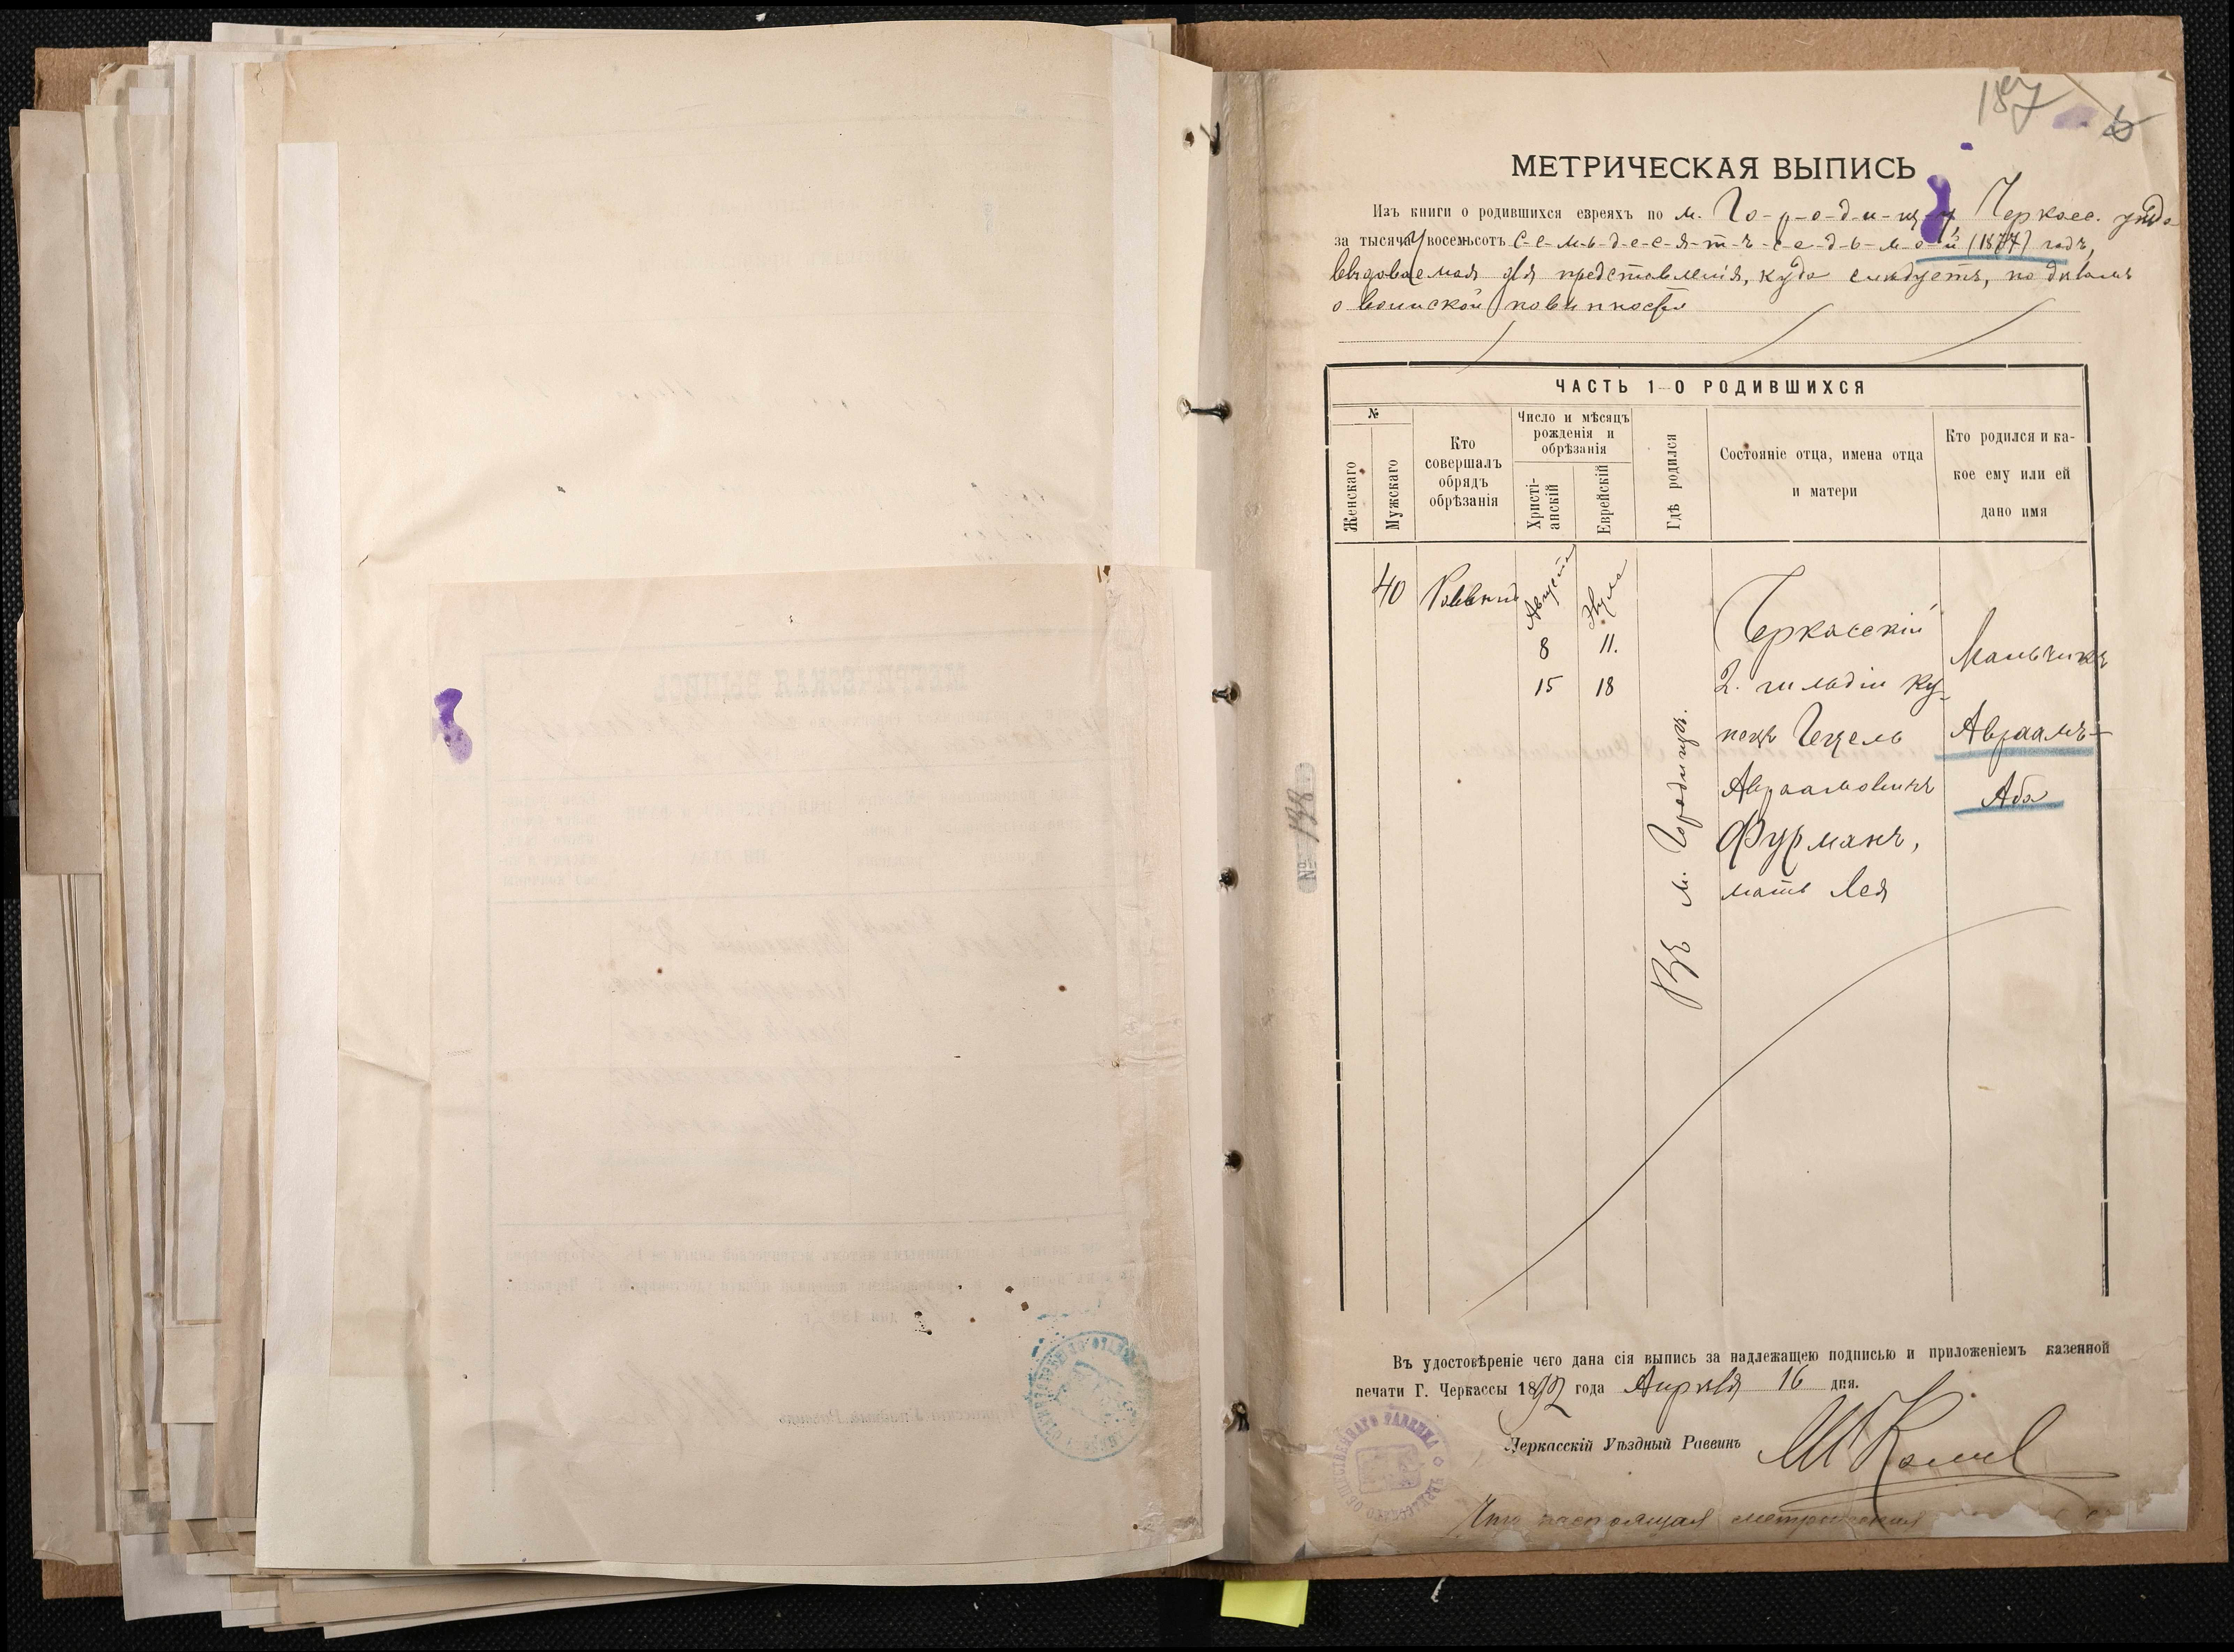 187
МЕТРИЧЕСКАЯ ВЫПИСЬ
Изъ книги о родившихся евреяхъ по м. Го-р-о-д-и-щ-у Черкасс. уѣзда
за тысяча восемьсотъ с-е-м-ь-д-е-с-я-т-ъ-с-е-д-ь-м-о-й (1877) годъ,
выдаваемая для представленія, куда слѣдуетъ, по дѣламъ
о воинской повинности
ЧАСТЬ 1-О РОДИВШИХСЯ
№
Женскаго
Мужскаго
Кто совершалъ обрядъ обрѣзанія
Число и мѣсяцъ рожденія и обрѣзанія
Христіанскій
Еврейскій
Гдѣ родился
Состояніе отца, имена отца и матери
Кто родился и какое ему или ей дано имя
40
Августа
8
15
Элула
11.
18
Въ м. Городищѣ.
Черкасскій
2. гильдіи ку-
пецъ Гецель
Авраамовичъ
Фурманъ,
мать Лея
Мальчикъ
Авраамъ-
Аба
№ 138
Въ удостовѣреніе чего дана сія выпись за надлежащею подписью и приложеніемъ казенной
печати Г. Черкассы 1897 года Апрѣля 16 дня.
Черкасскій Уѣздный Раввинъ
Что настоящая метрическая